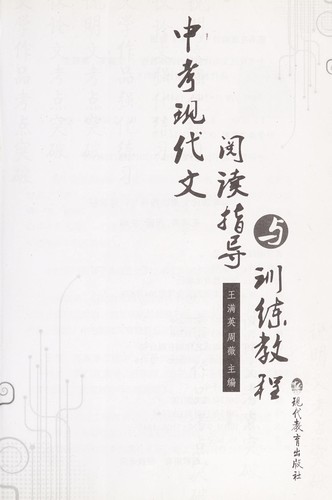 中考现代文
阅读指导
与
训练教程
王满英 周薇 主编
现代教育出版社